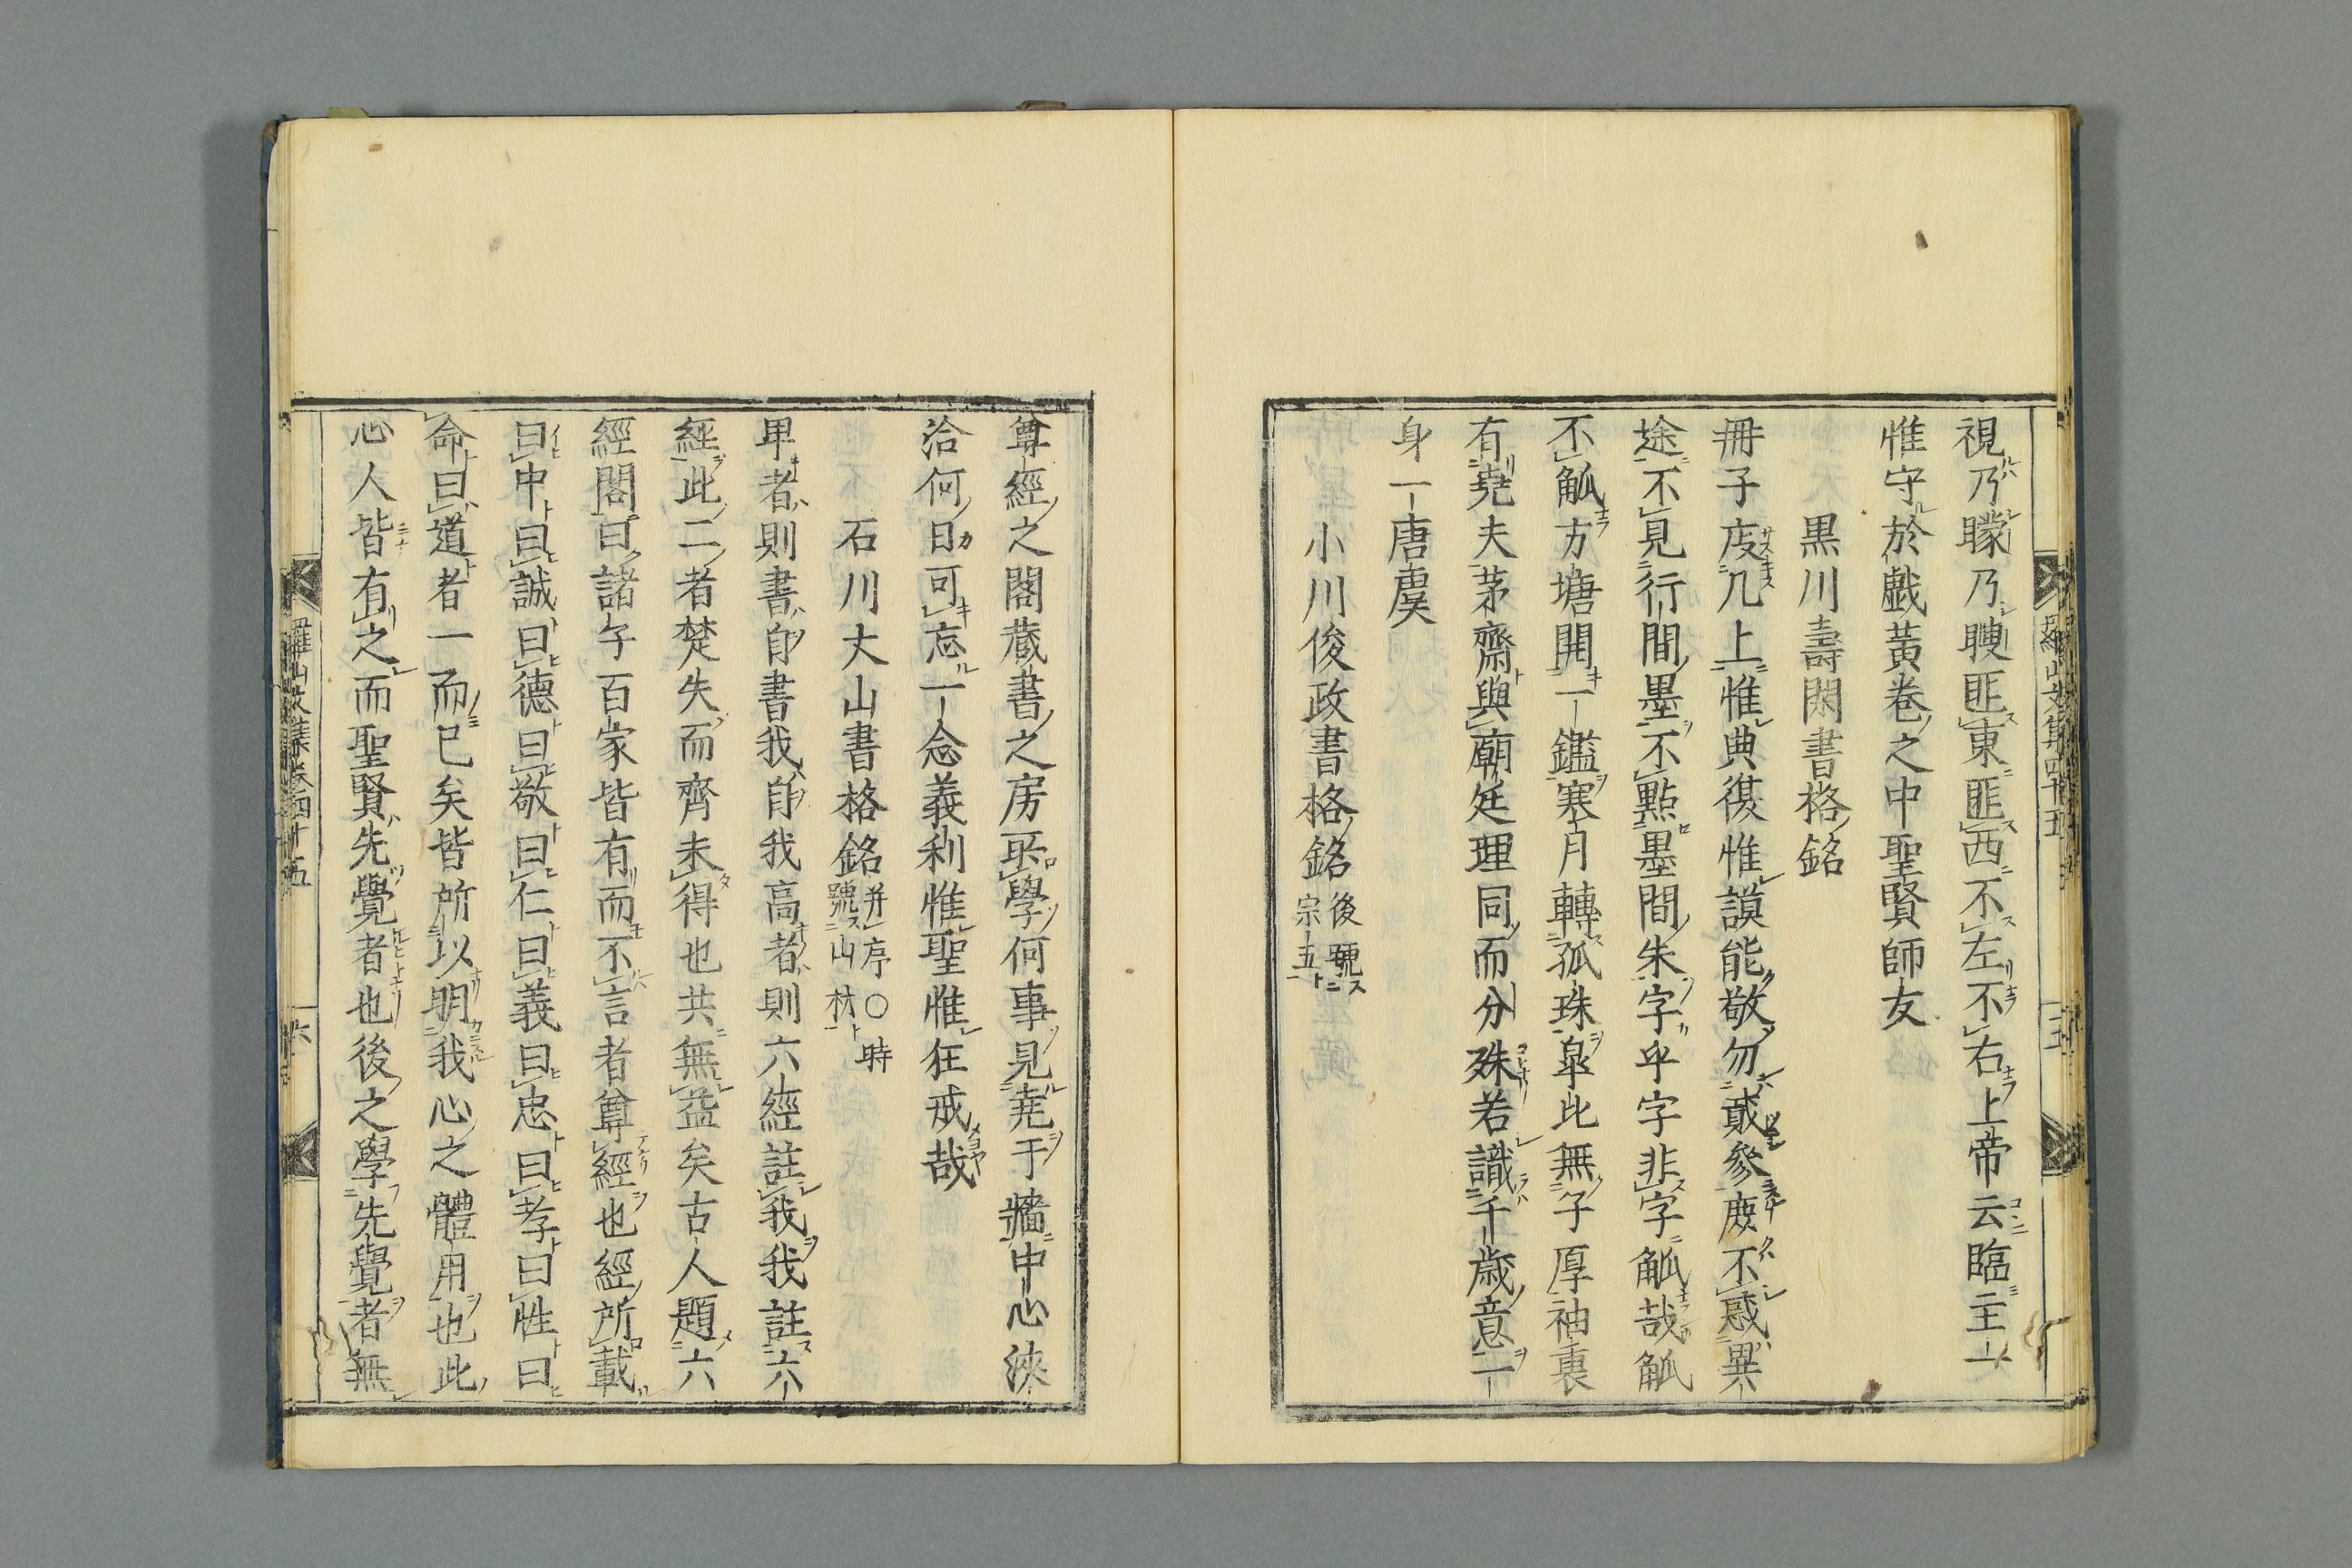 視乃矇乃瞍匪東匪西不左不右上帝云臨主一
惟守於戯黃卷之中聖賢師友
黒川壽閑書格銘
冊子庋几上惟典復惟謨能敬勿貳參庶不慼異
途不見行間墨不點墨間朱字乎字非字觚哉觚
不觚方塘開一鑑寒月轉孤珠皐此無子厚袖裏
有堯夫茅齋與廟廷理同而分殊若識千歳意一
身一唐虞
小川俊政書格銘後號宗五
尊經之閣藏書之房所學何事見堯于牆中心浹
洽何日可忘一念義利惟聖惟狂戒哉
石川丈山書格銘并序○時號山材
卑者則書自書我自我高者則六經註我我註六
經此二者楚失而齊未得也共無益矣古人題六
經閣曰諸子百家皆有而不言者尊經也經所載
曰中曰誠曰德曰敬曰仁曰義曰忠曰孝曰性曰
命曰道者一而已矣皆所以明我心之體用也此
心人皆有之而聖賢先覺者也後之學先覺者無
羅山文集卷四十五
六